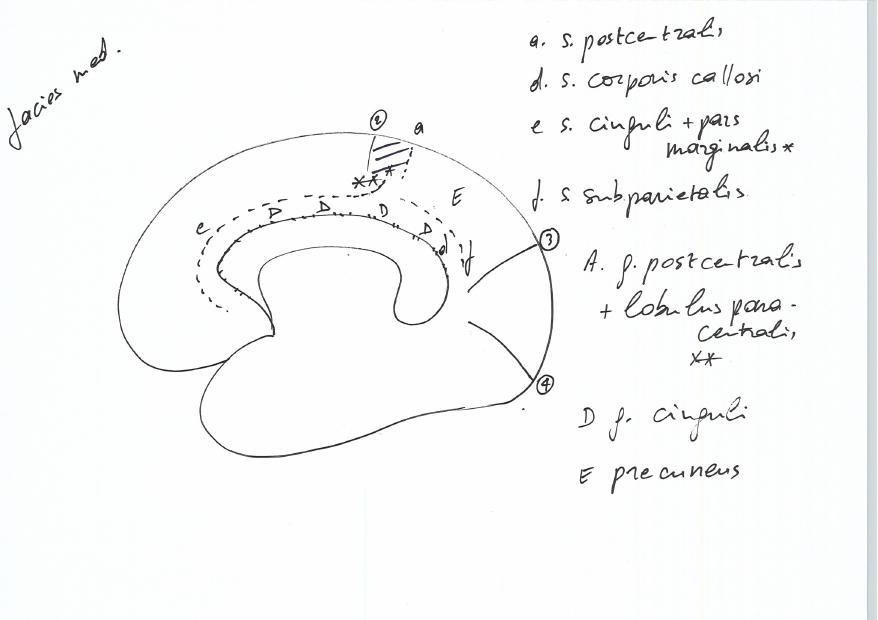 facies med.
a. s. postcentralis
d. s. corporis callosi
e s. cinguli + pars
marginalis *
f. s. subparietalis
A. g. postcentralis
+ lobulus para-
centralis
**
D g. cinguli
E precuneus
2
a
**
*
e
D
D
D
D
d
f
E
3
4